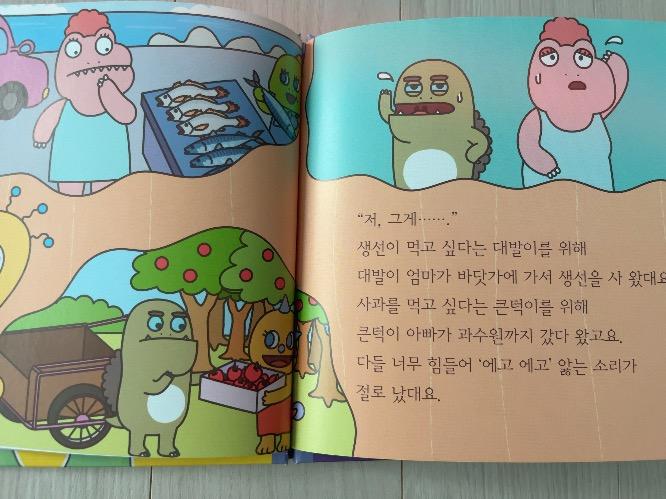 “저, 그게…….”
생선이 먹고 싶다는 대발이를 위해
대발이 엄마가 바닷가에 가서 생선을 사 왔대요.
사과를 먹고 싶다는 큰턱이를 위해
큰턱이 아빠가 과수원까지 갔다 왔고요.
다들 너무 힘들어 ‘에고 에고’ 앓는 소리가
절로 났대요.